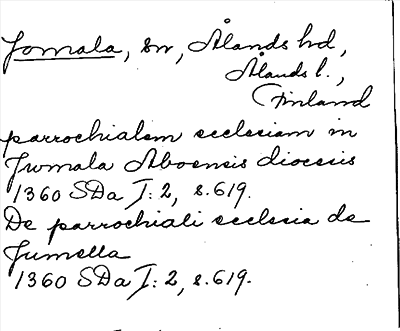 Jomala, sn, Ålands hd,
Ålands l.,
Finland
parrochialem ecclesiam in
Jwmala Aboensis diocesis
1360 SDa I: 2, s. 619.
De parrochiali ecclesia de
Jumella
1360 SDa I: 2, s. 619.